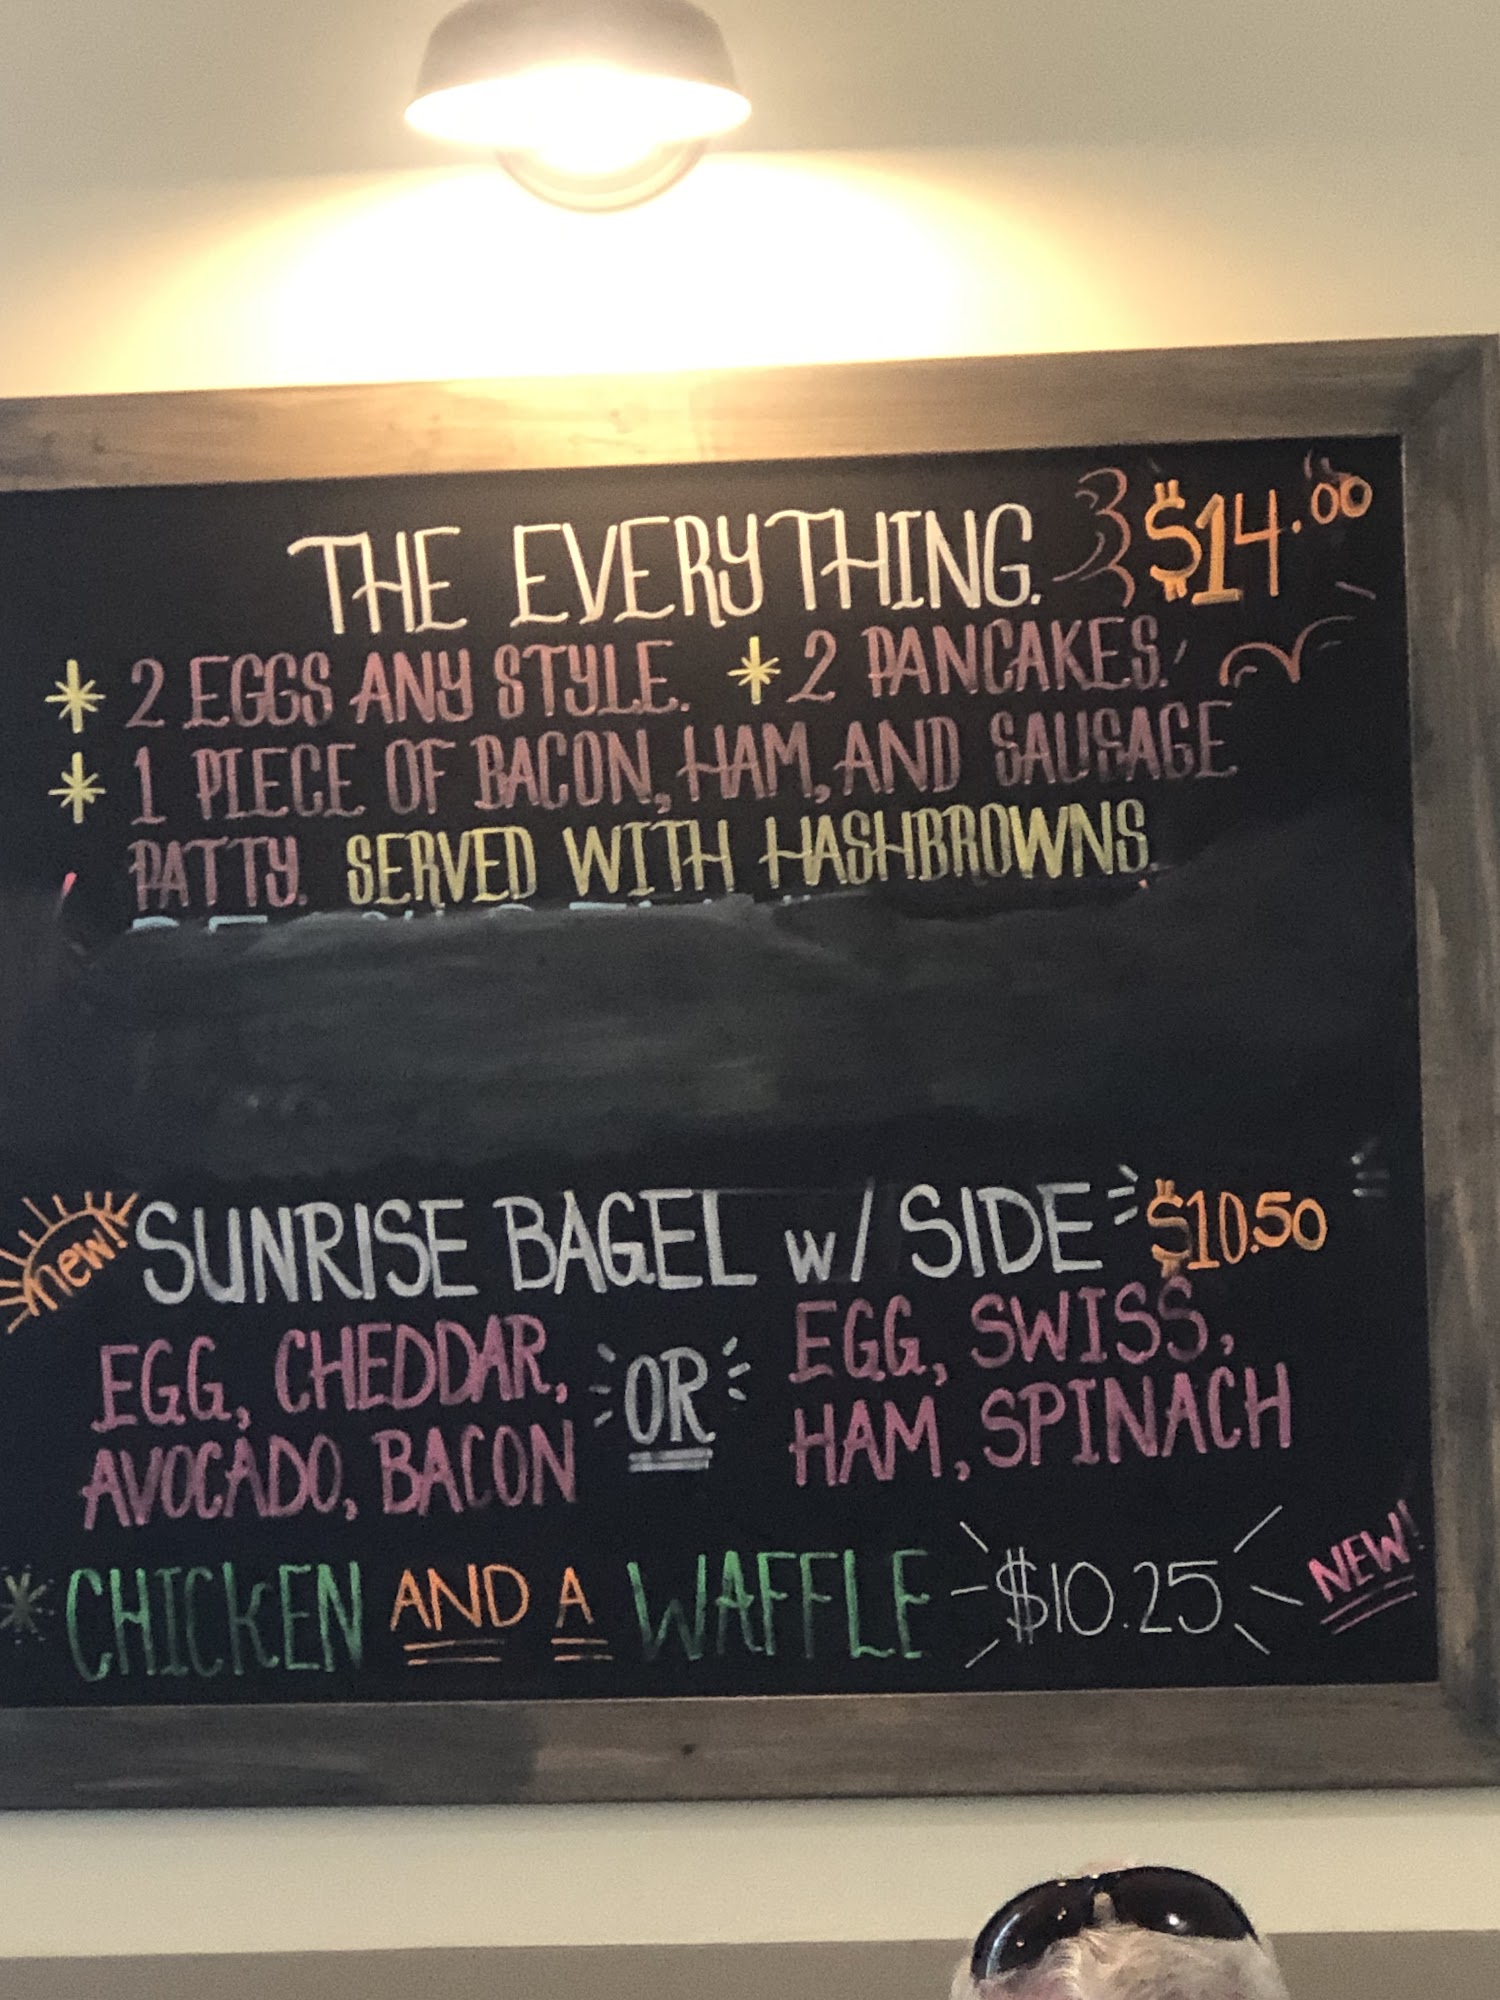 THE EVERYTHING. $14.00
* 2 EGGS ANY STYLE. * 2 PANCAKES.
* 1 PIECE OF BACON, HAM, AND SAUSAGE
PATTY. SERVED WITH HASHBROWNS.
new! SUNRISE BAGEL w/ SIDE $10.50
EGG, CHEDDAR,
AVOCADO, BACON
OR
EGG, SWISS,
HAM, SPINACH
* CHICKEN AND A WAFFLE $10.25 NEW!